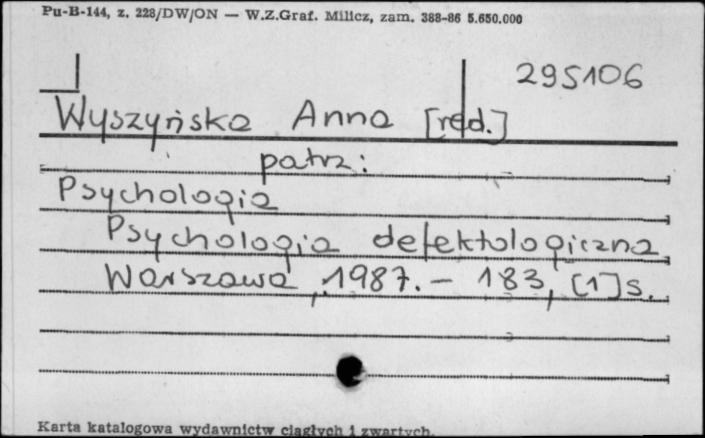 Pu-B-144, z. 228/DW/ON — W.Z.Graf. Milicz, zam. 388-86 5.650.000
295106
Wyszyńska Anna [red.]
patrz:
Psychologia
Psychologia defektologiczna
Warszawa, 1987. – 183, [1] s.
Karta katalogowa wydawnictw ciągłych i zwartych.